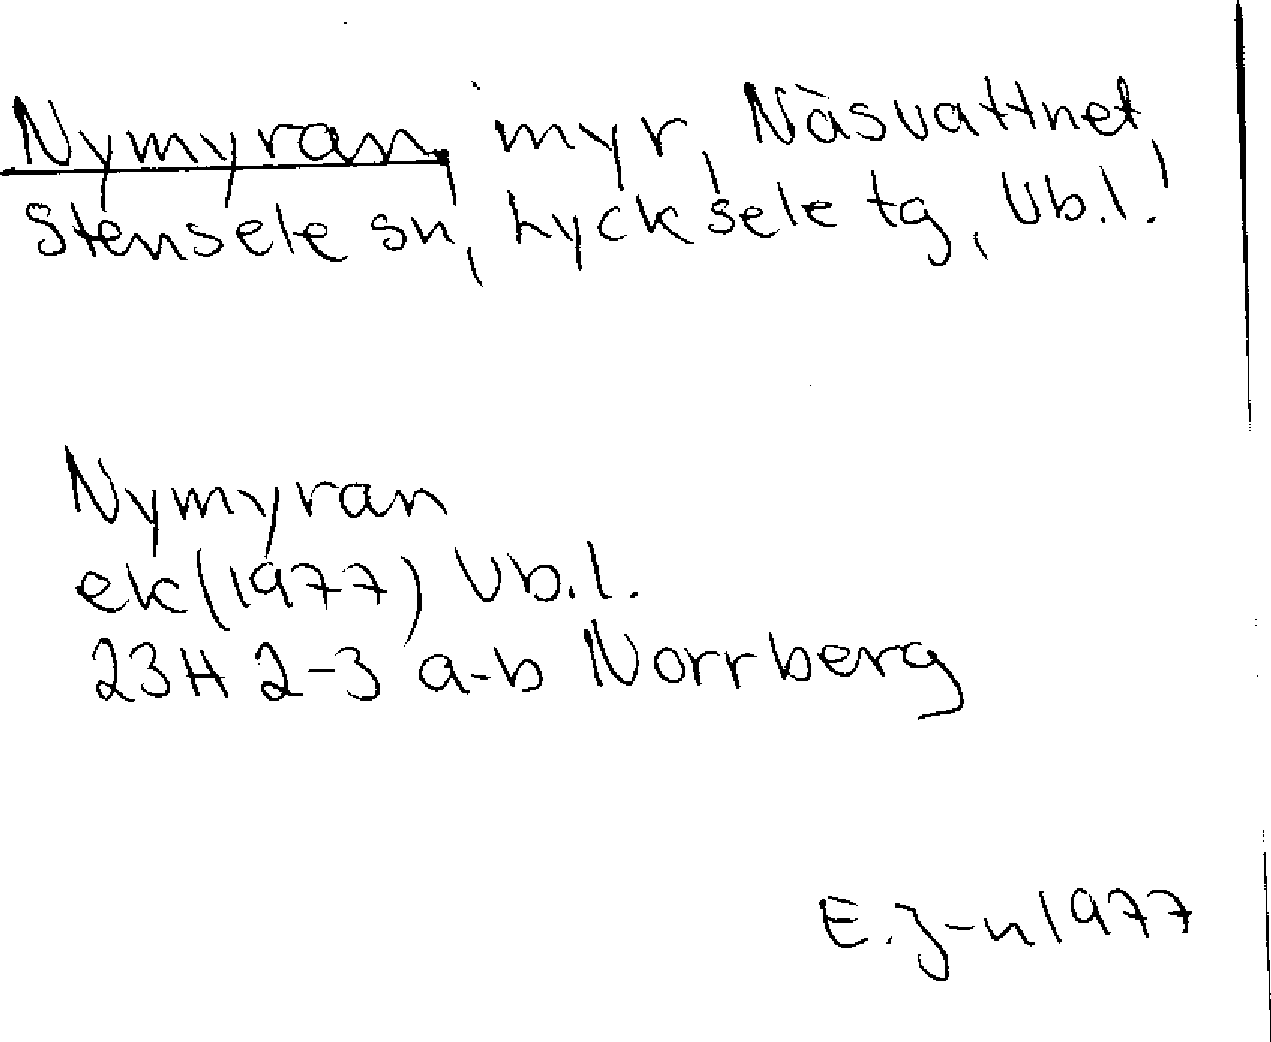 Nymyran, myr, Näsvattnet,
Stensele sn, Lycksele tg, Vb.l.
Nymyran
ek (1977) Vb.l.
23H 2-3 a-b Norrberg
E.J-n 1977